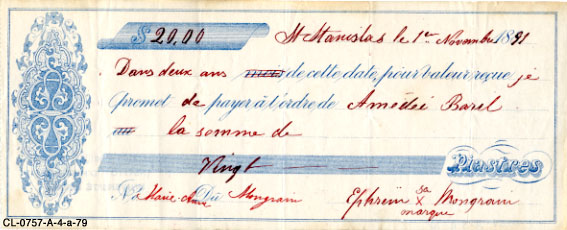 $ 20,00 St Stanislas le 1er Novembre 1891
Dans deux ans mois de cette date, pour valeur reçue je
promet de payer à l'ordre de Amédéi Baril
la somme de
Vingt Piastres
No Marie-Anne Dû Mongrain Ephreim sa x Mongrain
marque
CL-0757-A-4-a-79